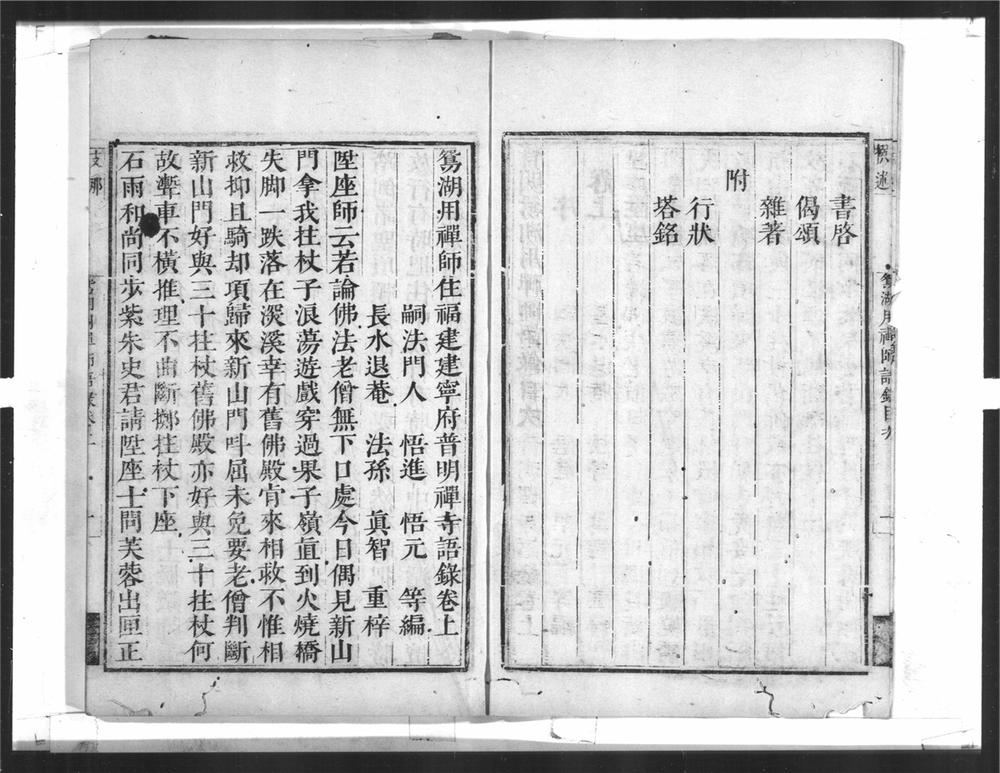 書啓
偈頌
雜著
附
行狀
塔銘
鴛湖用禪師住福建建寧府普明禪寺語錄卷上
嗣法門人 悟進 悟元 等編
長水退菴 法孫 眞智 重梓
陞座師云若論佛法老僧無下口處今日偶見新山
門拿我拄杖子浪蕩遊戲穿過果子嶺直到火燒橋
失脚一跌落在淡溪幸有舊佛殿肯來相救不惟相
救抑且騎却項歸來新山門呌屈未免要老僧判斷
新山門好與三十拄杖舊佛殿亦好與三十拄杖何
故鼙車不橫推理不曲斷擲拄杖下座
石雨和尚同步紫朱史君請陞座士問芙蓉出匣正